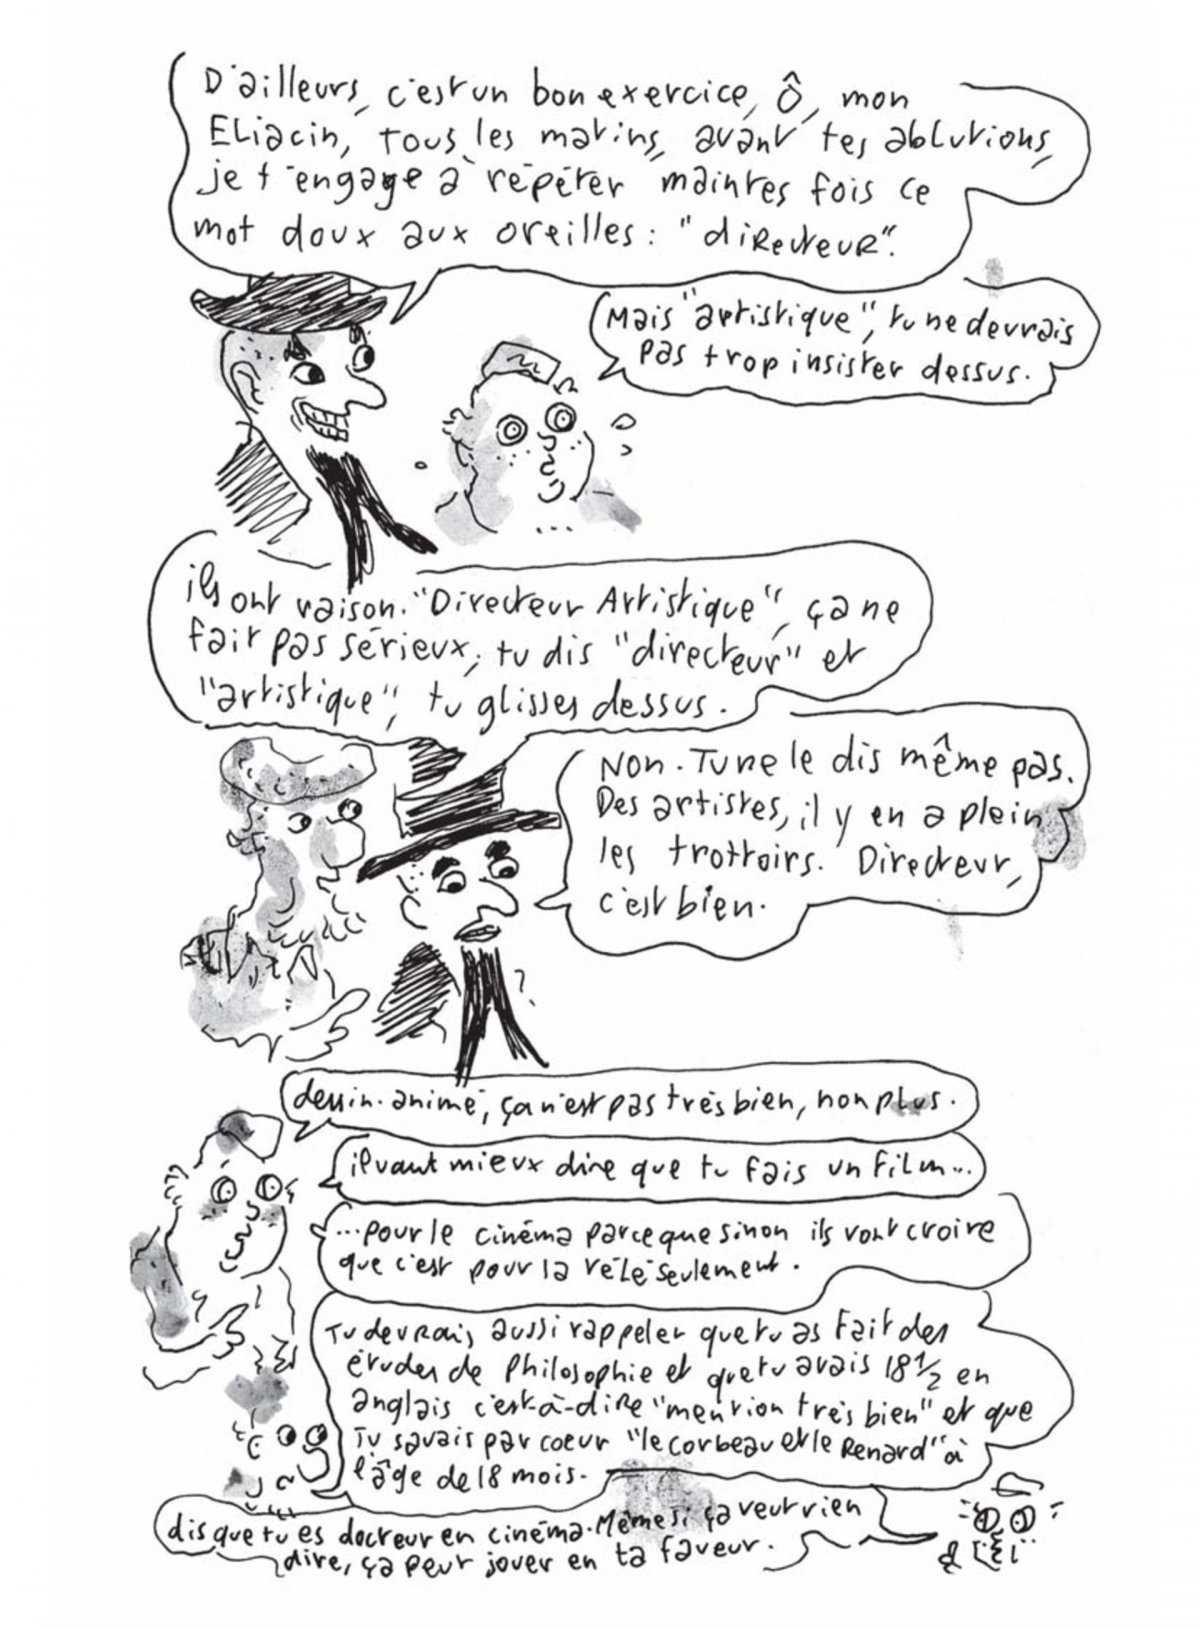 D'ailleurs, c'est un bon exercice, Ô, mon
Eliacin, tous les matins, avant tes ablutions,
je t'engage à répéter maintes fois ce
mot doux aux oreilles : "diRecteuR".
Mais "artistique", tu ne devrais
pas trop insister dessus.
ils ont raison. "Directeur Artistique", ça ne
fait pas sérieux, tu dis "directeur" et
"artistique", tu glisses dessus.
Non. Tu ne le dis même pas.
Des artistes, il y en a plein
les trottoirs. Directeur,
c'est bien.
dessin-animé, ça n'est pas très bien, non plus.
il vaut mieux dire que tu fais un film...
...pour le cinéma parce que sinon ils vont croire
que c'est pour la télé seulement.
Tu devrais aussi rappeler que tu as fait des
études de philosophie et que tu avais 18 1/2 en
anglais c'est-à-dire "mention très bien" et que
tu savais par coeur "le corbeau et le Renard" à
l'âge de 18 mois.
dis que tu es docteur en cinéma. Même si ça veut rien
dire, ça peut jouer en ta faveur.